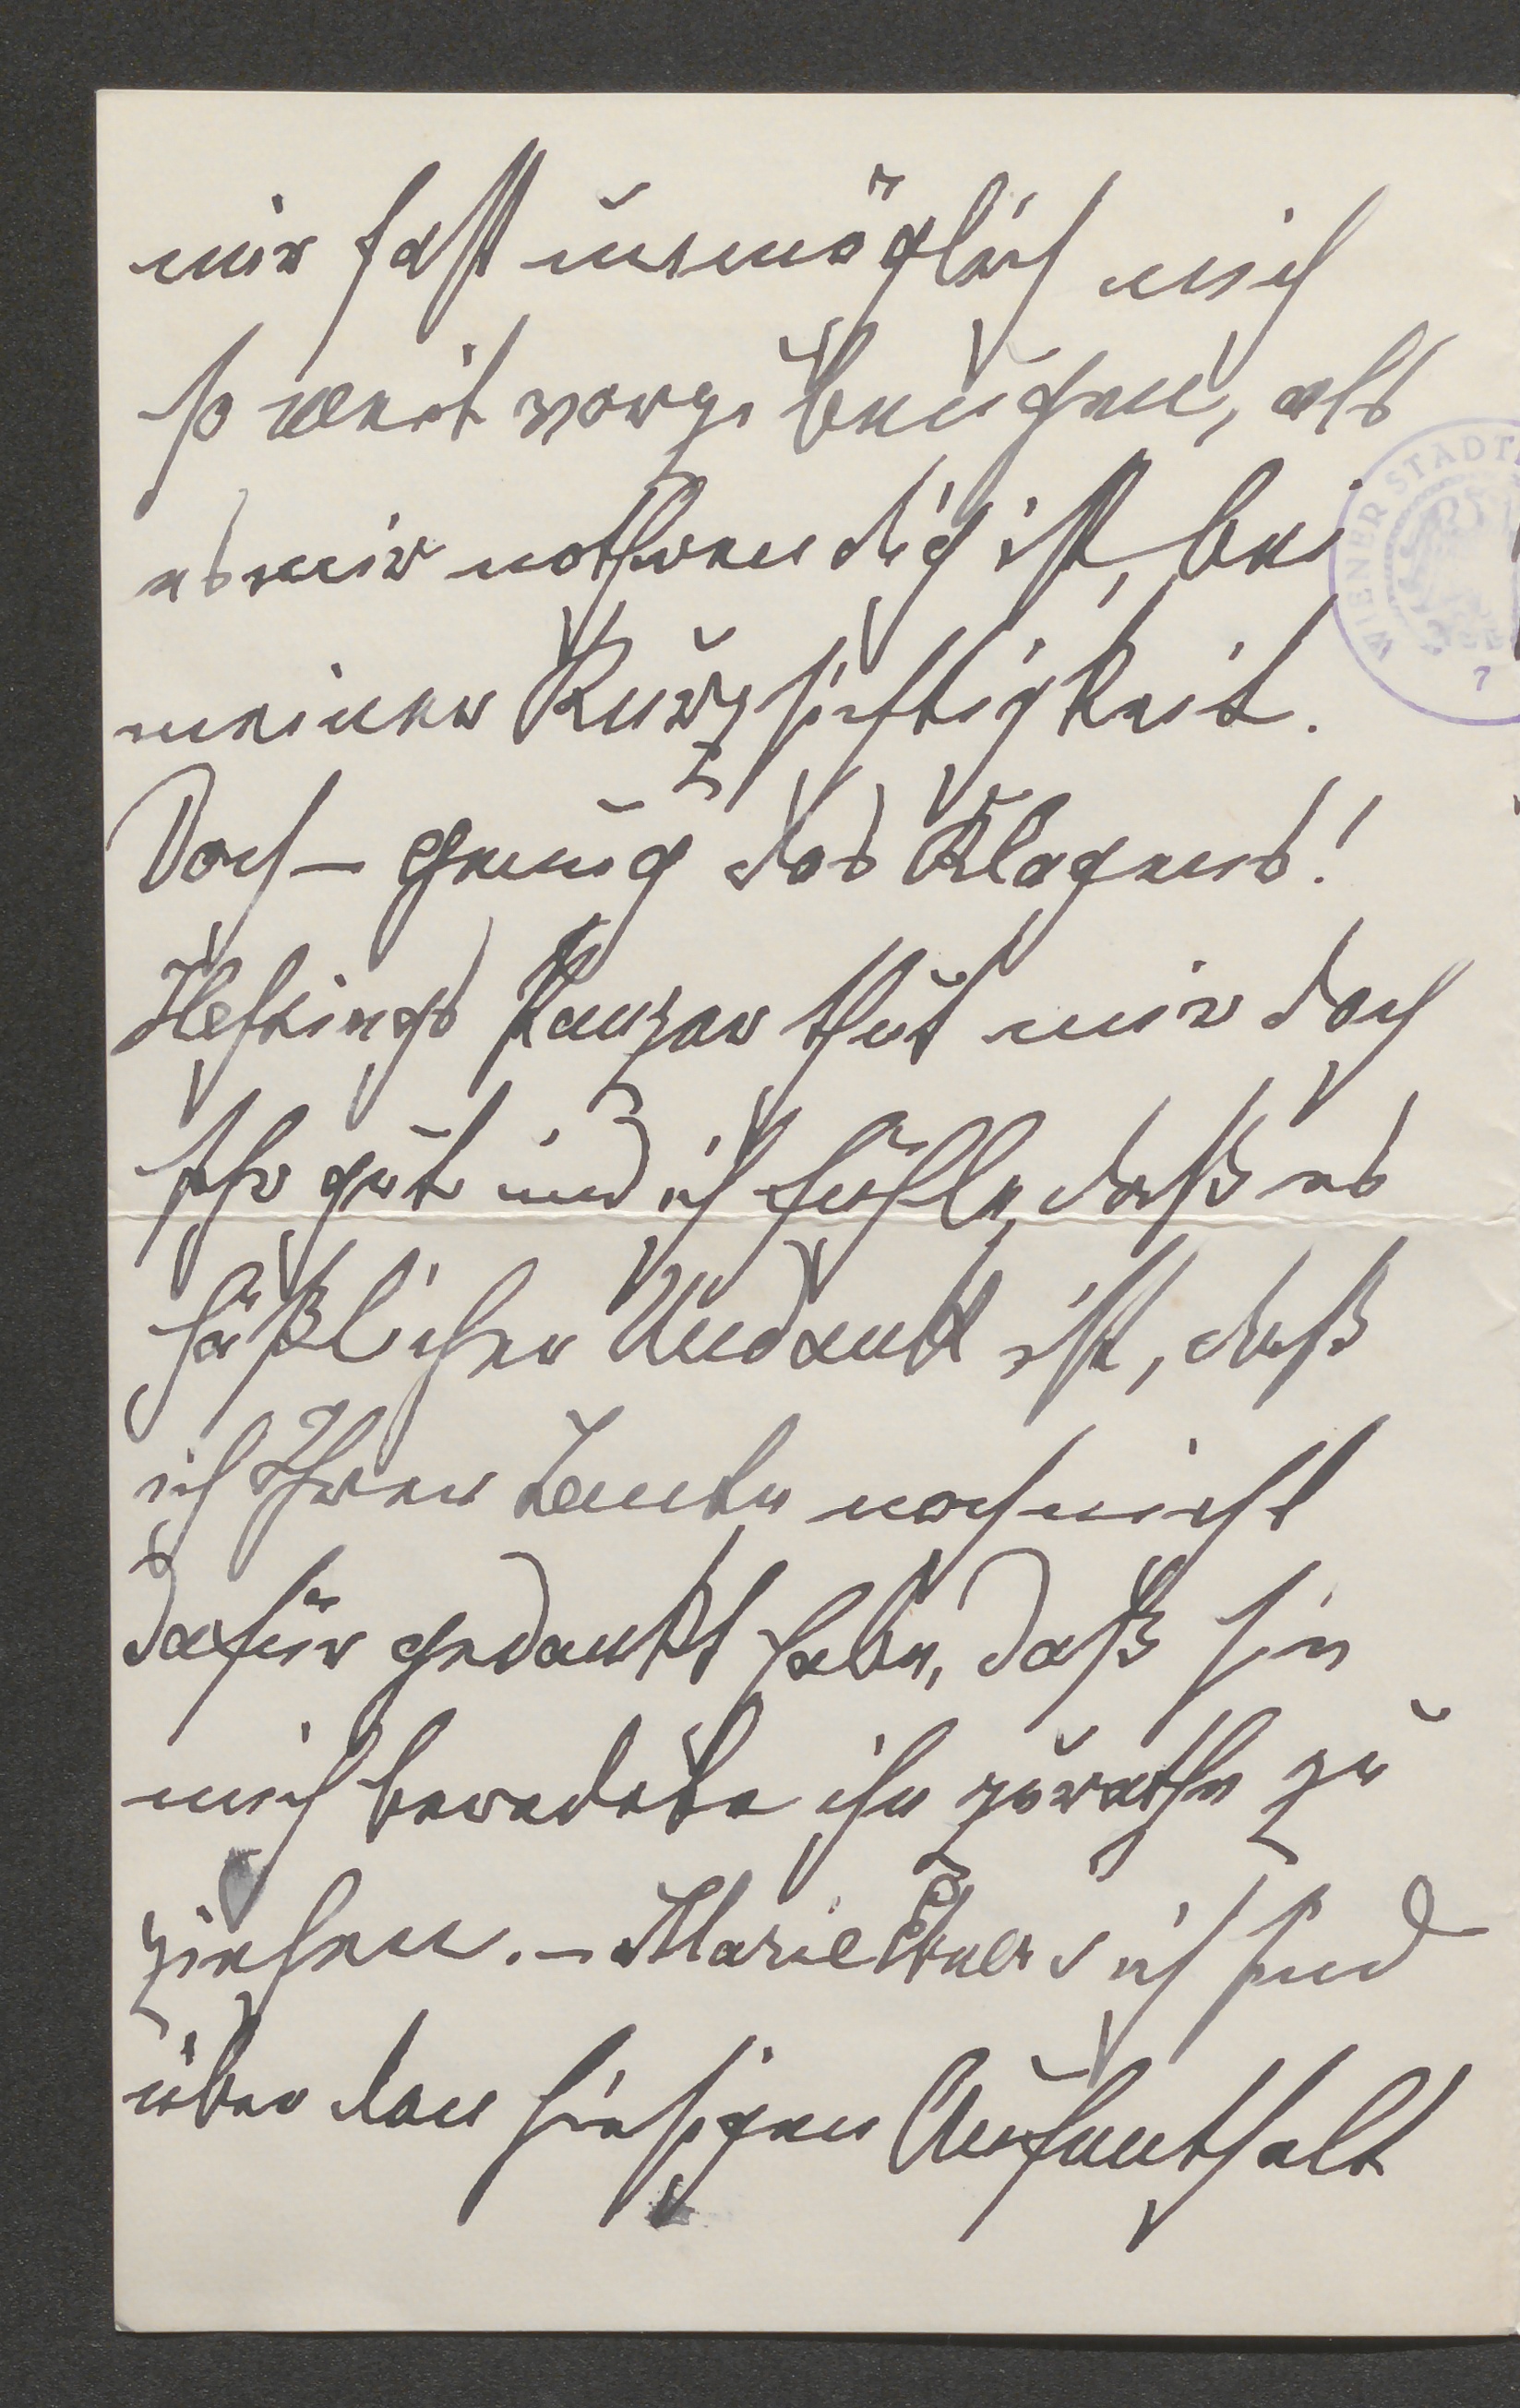 mir fast unmöglich mich
so weit vorzubeugen, als
es mir nothwendig ist, bei
meiner Kurzsichtigkeit.
Doch – genug des Klagens!
Hessings Panzer thut mir doch
sehr gut und ich fühle, daß es
häßlicher Undank ist, daß
ich Ihrer Tante noch nicht
dafür gedankt habe, daß sie
mich beredete ihn zurathe zu
ziehen. – Marie Ebner u ich sind
über den hiesigen Aufenthalt
WIENER STADT
7